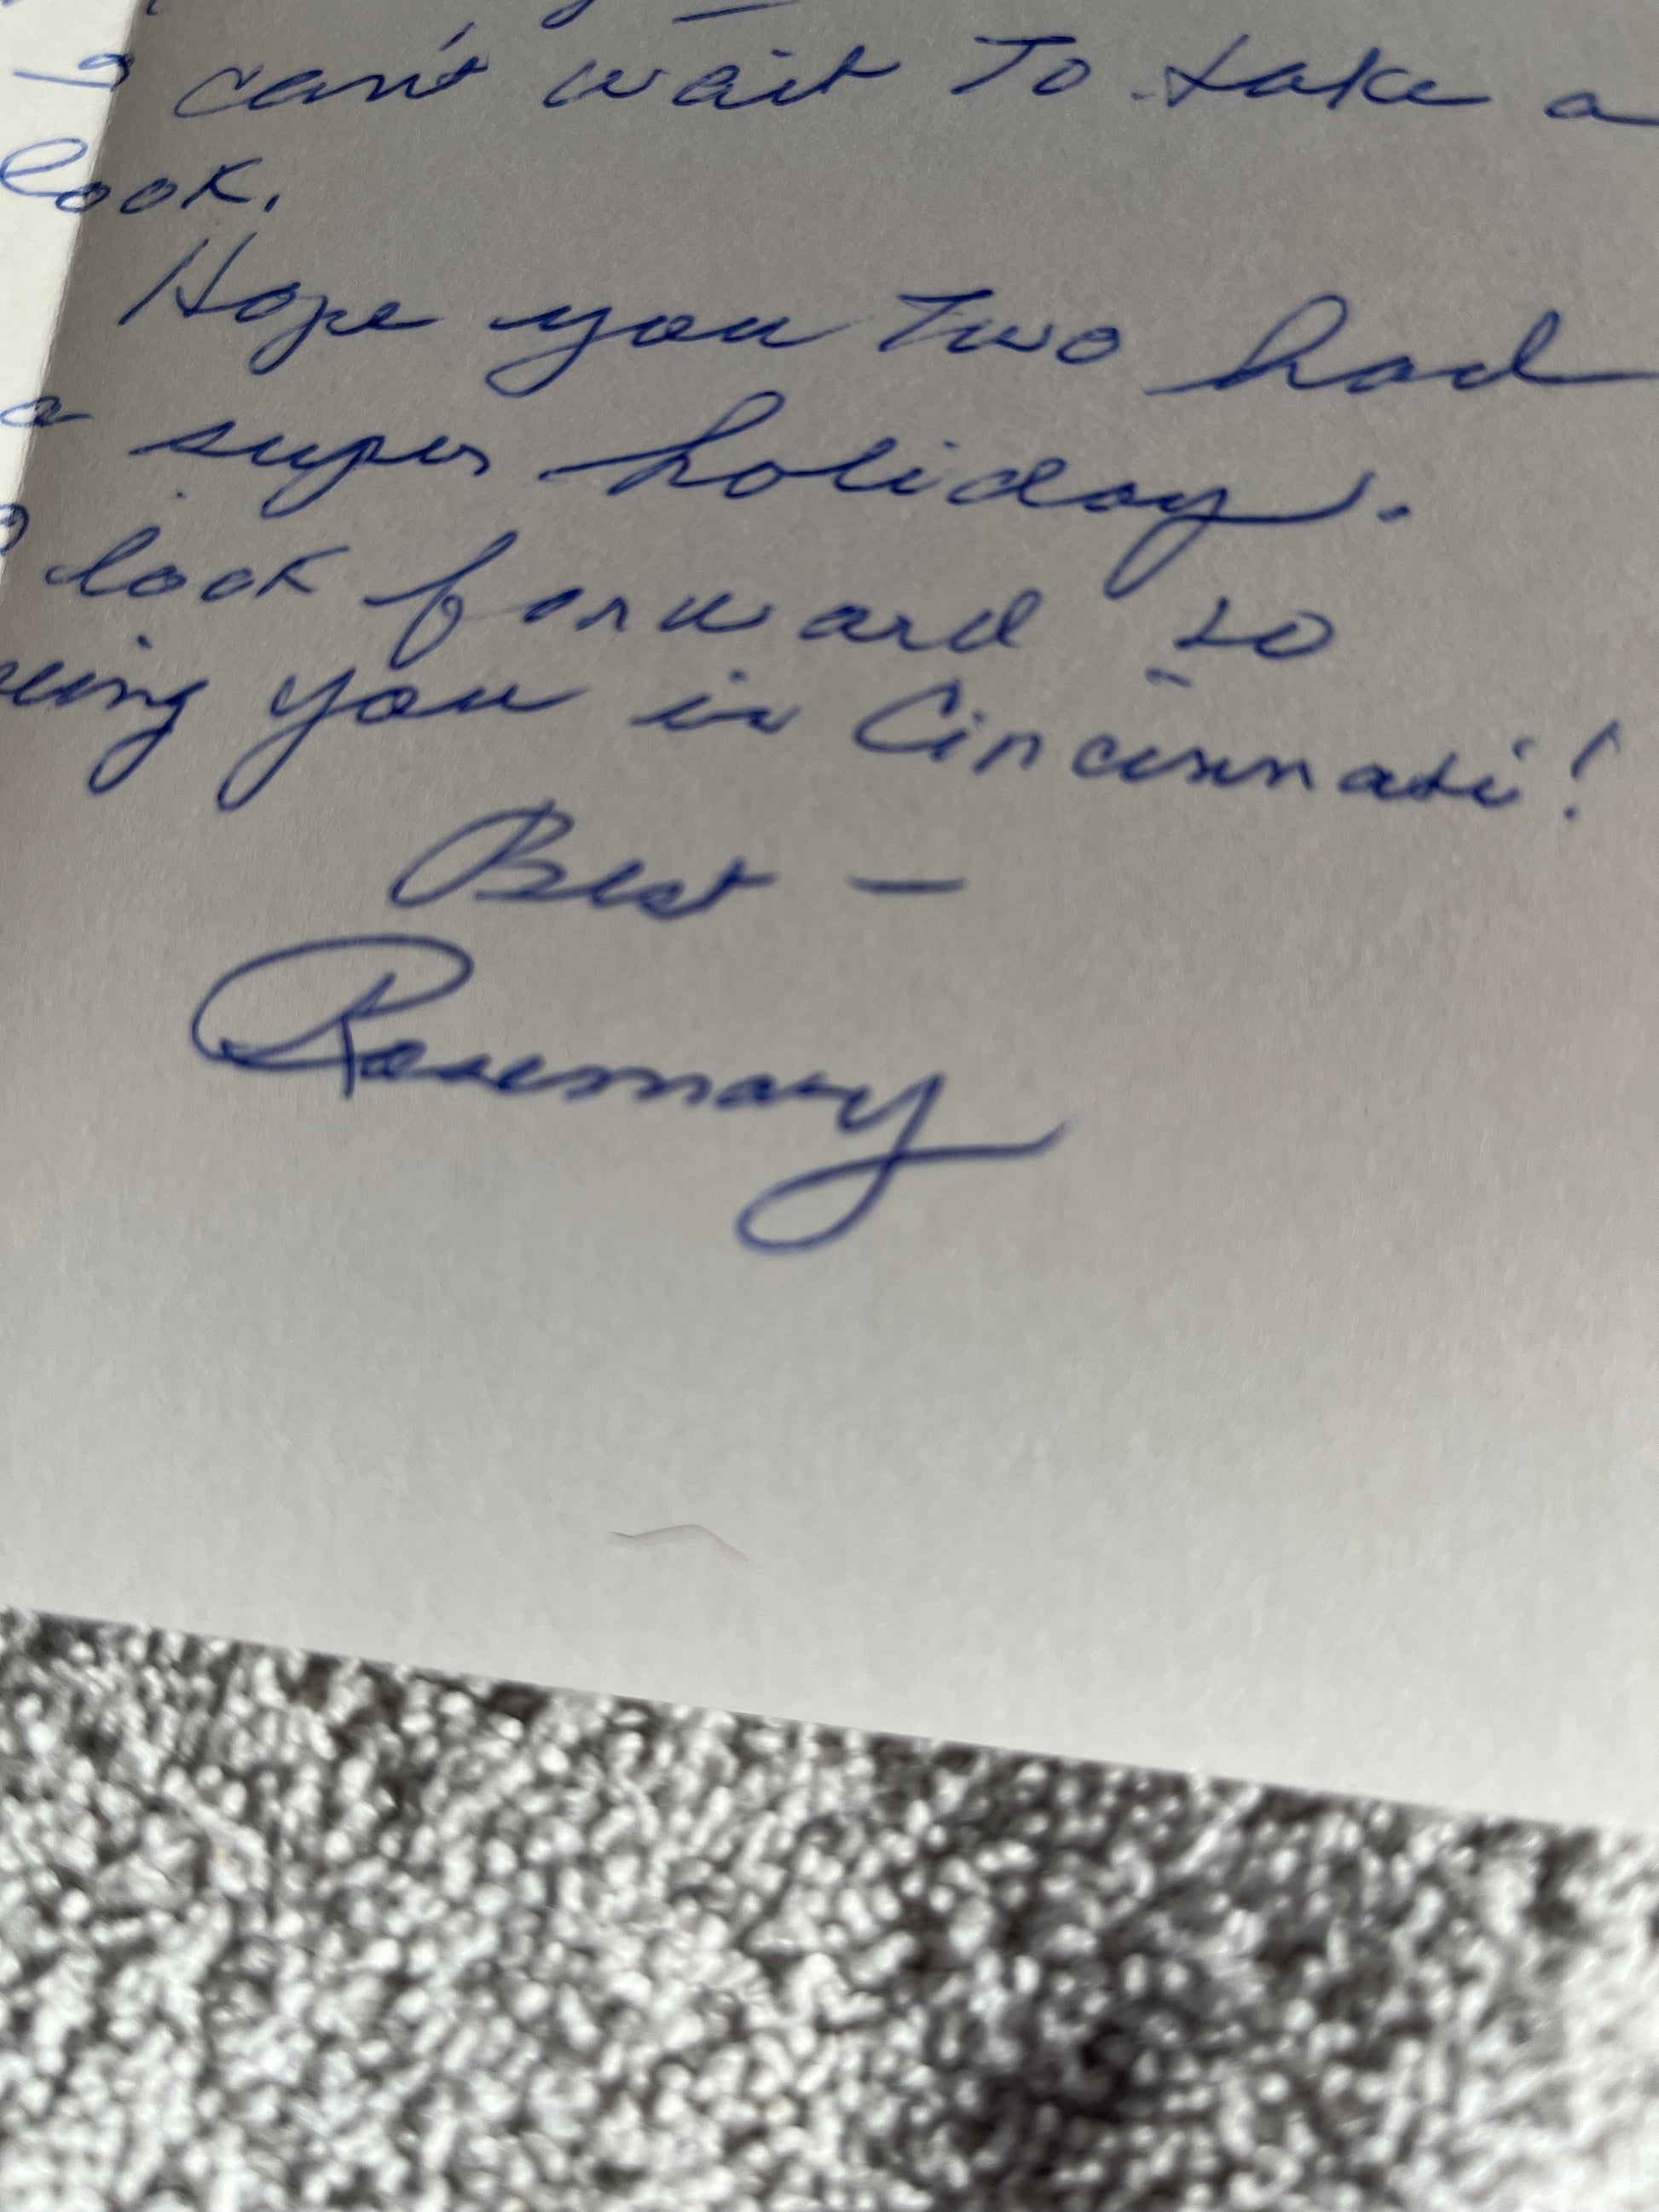 I can't wait To take a
look.
Hope you Two had
a super holiday.
I look forward to
seeing you in Cincinnati!
Best —
Rosemary